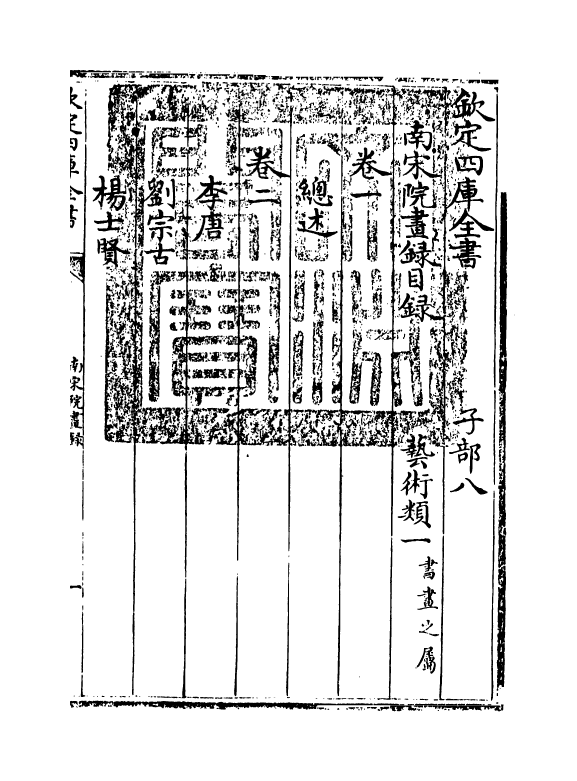 欽定四庫全書　　　子部八
南宋院畫録目録　　　藝術類一書畫之屬
卷一
總述
卷二
李唐
劉宗古
楊士賢
欽定四庫全書
南宋院畫録
一